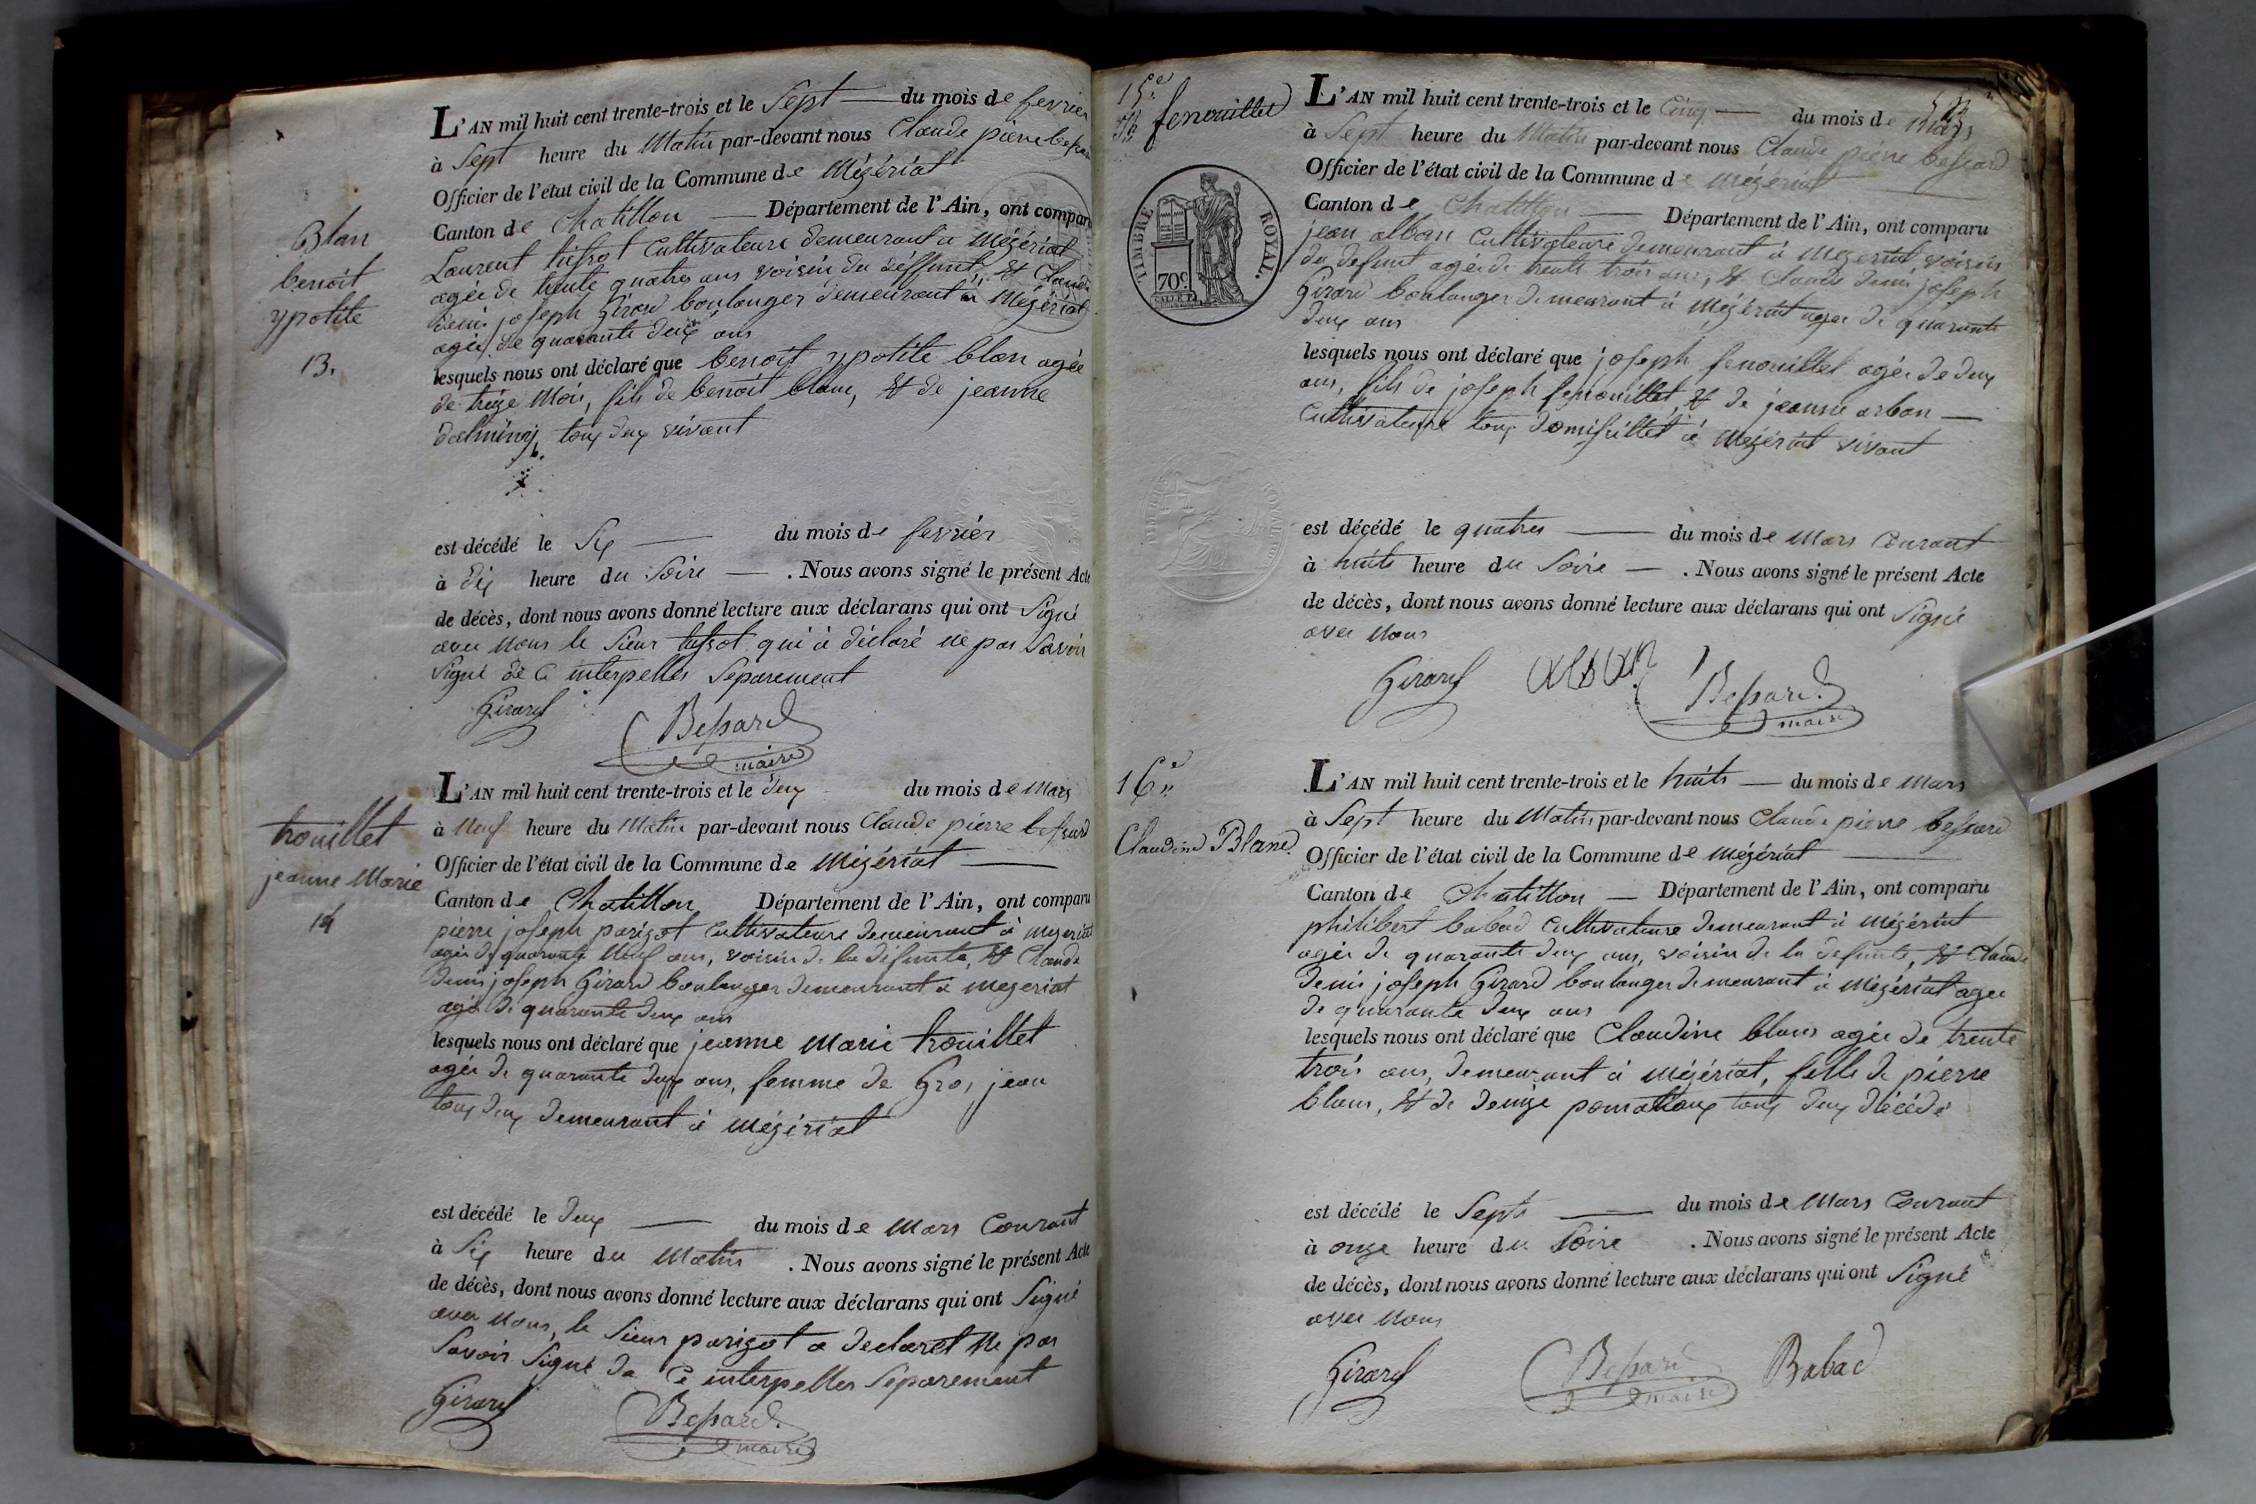 Blan
benoit
ypolite
13.
L'AN mil huit cent trente-trois et le Sept du mois de fevrier
à Sept heure du Matin par-devant nous Claude pierre
Officier de l'état civil de la Commune de Mézériat
Canton de Chatillon Département de l'Ain, ont comparu
Laurent cultivateure demeurant a Mézériat
agée de trente quatres ans voisin du deffunt, & Claude
denis joseph Girard boulanger demeurant à Mézériat
agée de quarante deux ans
lesquels nous ont déclaré que benoit ypolite blan agée
de treize Mois, fils de benoit blanc, & de jeanne
toux deux vivant
est décédé le Six du mois de fevrier
à dix heure du Soire . Nous avons signé le présent Acte
de décès, dont nous avons donné lecture aux déclarans qui ont Signé
avec nous le Sieur qui à déclaré ne pas Savoir
Signé de ce interpelles Séparement
Girard Bessard
maire
trouillet
jeanne Marie
14
L'AN mil huit cent trente-trois et le deux du mois de Mars
à Neuf heure du Matin par-devant nous Claude pierre bessard
Officier de l'état civil de la Commune de Mézériat
Canton de Chatillon Département de l'Ain, ont comparu
pierre joseph parizot cultivateure demeurant à Mezeriat
agée de quarante Neuf ans, voisin de la défunte, & Claude
denis joseph Girard boulanger demeurant à Mezeriat
agée de quarante deux ans
lesquels nous ont déclaré que jeanne Marie trouillet
agée de quarante deux ans, femme de Gros jean
toux deux demeurant à Mézériat
est décédé le deux du mois de Mars Courant
à Six heure du Matin . Nous avons signé le présent Acte
de décès, dont nous avons donné lecture aux déclarans qui ont Signé
avec nous, le Sieur parizot a declaret ne pas
Savoir Signé de Ce interpelles Séparement
Girard Bessard
maire
15e
fenouillet
TIMBRE ROYAL.
70c.
L'AN mil huit cent trente-trois et le Cinq du mois de Mars
à Sept heure du Matin par-devant nous Claude pierre bessard
Officier de l'état civil de la Commune de Mézériat
Canton de Chatillon Département de l'Ain, ont comparu
jean alban Cultivateure demeurant à Mezeriat voisin
du defunt agée de trente trois ans, & Claude denis joseph
Girard boulanger demeurant à Mézériat agée de quarante
deux ans
lesquels nous ont déclaré que joseph fenouillet agée de deux
ans, fils de joseph fenouillet & de jeanne arban
Cultivateure toux domisillet à Mézériat vivant
est décédé le quatres du mois de Mars Courant
à huits heure du Soire . Nous avons signé le présent Acte
de décès, dont nous avons donné lecture aux déclarans qui ont Signé
avec nous
Girard alban Bessard
maire
16e
Claudine Blanc
L'AN mil huit cent trente-trois et le huits du mois de Mars
à Sept heure du Matin par-devant nous Claude pierre bessard
Officier de l'état civil de la Commune de Mézériat
Canton de Chatillon Département de l'Ain, ont comparu
philibert babad cultivateure demeurant à Mézériat
agée de quarante deux ans, voisin de la defunte, & Claude
denis joseph Girard boulanger demeurant à Mézériat agée
de quarante deux ans
lesquels nous ont déclaré que Claudine blanc agée de trente
trois ans, demeurant à Mézériat, fille de pierre
blanc, & de denize toux deux décédé
est décédé le Sept du mois de Mars Courant
à onze heure du Soire . Nous avons signé le présent Acte
de décès, dont nous avons donné lecture aux déclarans qui ont Signé
avec nous
Girard Bessard Babad
maire